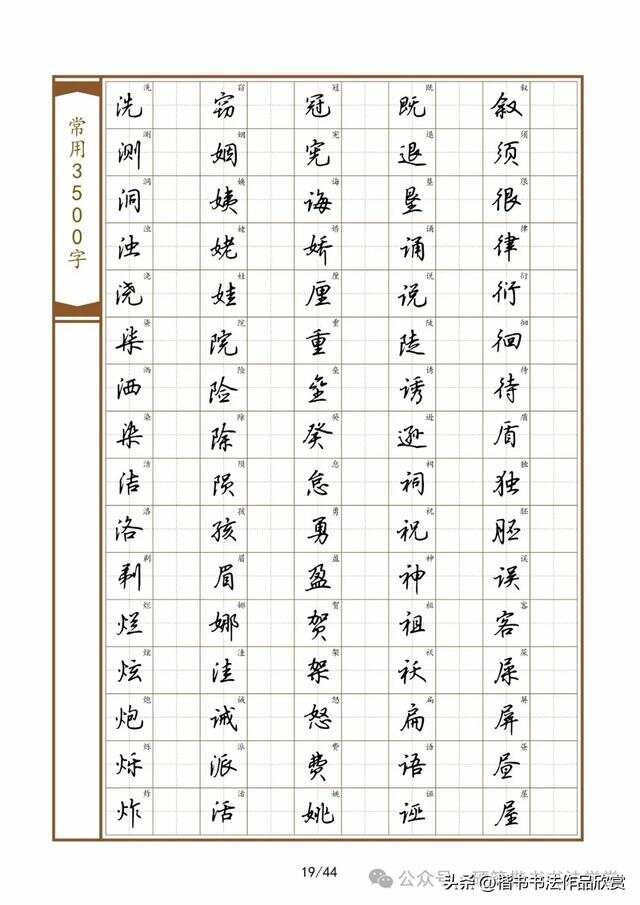 常用3500字
洗 窃 冠 既 叙
洗 窃 冠 既 叙
测 姻 宪 退 须
测 姻 宪 退 须
洞 姨 诲 垦 很
洞 姨 诲 垦 很
浊 姥 娇 诵 律
浊 姥 娇 诵 律
浇 娃 厘 说 衍
浇 娃 厘 说 衍
柒 院 重 陡 徊
柒 院 重 陡 徊
洒 险 垒 诱 待
洒 险 垒 诱 待
染 除 癸 逊 盾
染 除 癸 逊 盾
洁 陨 怠 祠 独
洁 陨 怠 祠 独
洛 孩 勇 祝 胚
洛 孩 勇 祝 胚
剃 眉 盈 神 误
剃 眉 盈 神 误
烂 娜 贺 祖 客
烂 娜 贺 祖 客
炫 洼 架 袄 屎
炫 洼 架 袄 屎
炮 诫 怒 扁 屏
炮 诫 怒 扁 屏
烁 派 费 语 昼
烁 派 费 语 昼
炸 活 姚 诬 屋
炸 活 姚 诬 屋
19/44
公众号
头条@楷书书法作品欣赏